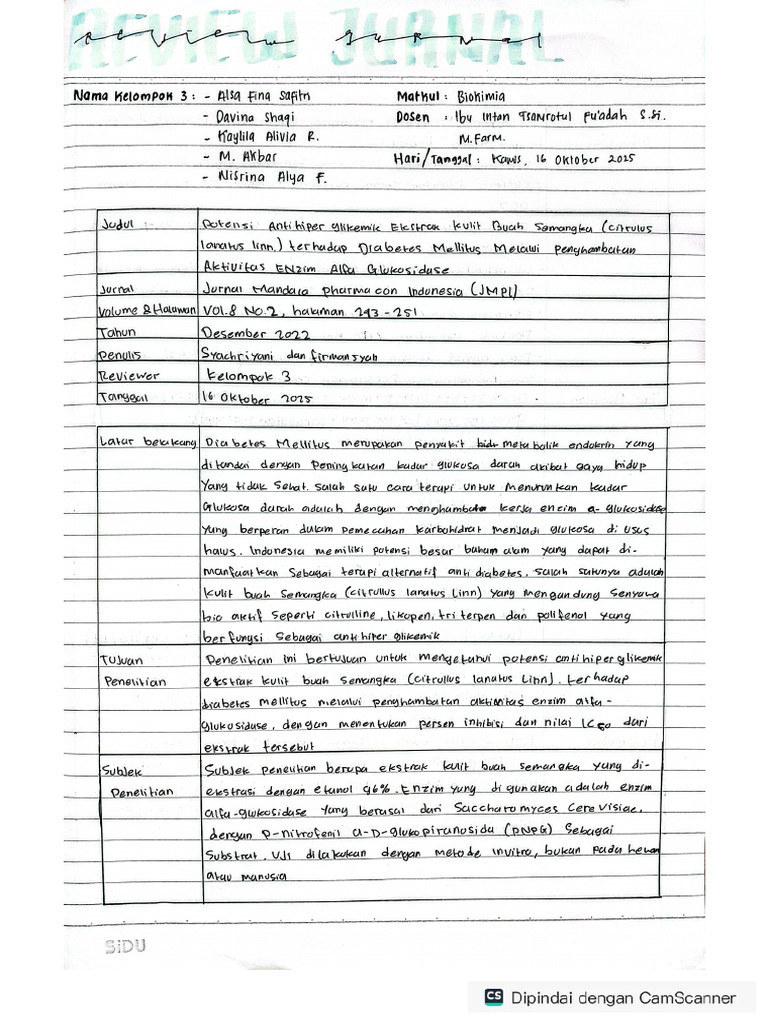 REVIEW JURNAL
Nama Kelompok 3 : - Alsa Fina Safitri
Matkul : Biokimia
- Davina Shaqi
Dosen : Ibu Intan Tsamrotul Fu'adah S.Si.
- Kaylila Alivia R.
M.Farm.
- M. Akbar
Hari/Tanggal : Kamis, 16 Oktober 2025
- Nisrina Alya F.
Judul : Potensi Antihiper glikemik Ekstrak Kulit Buah Semangka (citrulus
lanatus linn.) terhadap Diabetes Mellitus Melalui Penghambatan
Aktivitas Enzim Alfa Glukosidase
Jurnal Jurnal Mandala Pharmacon Indonesia (JMPI)
Volume & Halaman Vol.8 No.2, halaman 243 - 251
Tahun Desember 2022
Penulis Syachriyani dan firmansyah
Reviewer Kelompok 3
Tanggal 16 Oktober 2025
Latar belakang Diabetes Mellitus merupakan penyakit metabolik endokrin yang
ditandai dengan peningkatan kadar glukosa darah akibat gaya hidup
yang tidak sehat. salah satu cara terapi untuk menurunkan kadar
Glukosa darah adalah dengan menghambat kerja enzim a-glukosidase
yang berperan dalam pemecahan karbohidrat menjadi glukosa di usus
halus. Indonesia memiliki potensi besar bahan alam yang dapat di-
manfaatkan sebagai terapi alternatif anti diabetes. salah satunya adalah
kulit buah semangka (citrullus lanatus Linn) yang mengandung senyawa
bio aktif seperti citrulline, likopen, tri terpen dan polifenol yang
berfungsi sebagai antihiper glikemik
Tujuan Penelitian ini bertujuan untuk mengetahui potensi antihiperglikemik
Penelitian ekstrak kulit buah semangka (citrullus lanatus Linn). terhadap
diabetes mellitus melalui penghambatan aktivitas enzim alfa-
glukosidase, dengan menentukan persen inhibisi dan nilai IC50 dari
ekstrak tersebut
Subjek Subjek penelitian berupa ekstrak kulit buah semangka yang di-
Penelitian ekstrasi dengan etanol 96%. Enzim yang digunakan adalah enzim
alfa-glukosidase yang berasal dari Saccharomyces Cerevisiae,
dengan P-nitrofenil a-D-glukopiranosida (PNPG) sebagai
Substrat. Uji dilakukan dengan metode invitro, bukan pada hewan
atau manusia
SiDU
CS Dipindai dengan CamScanner